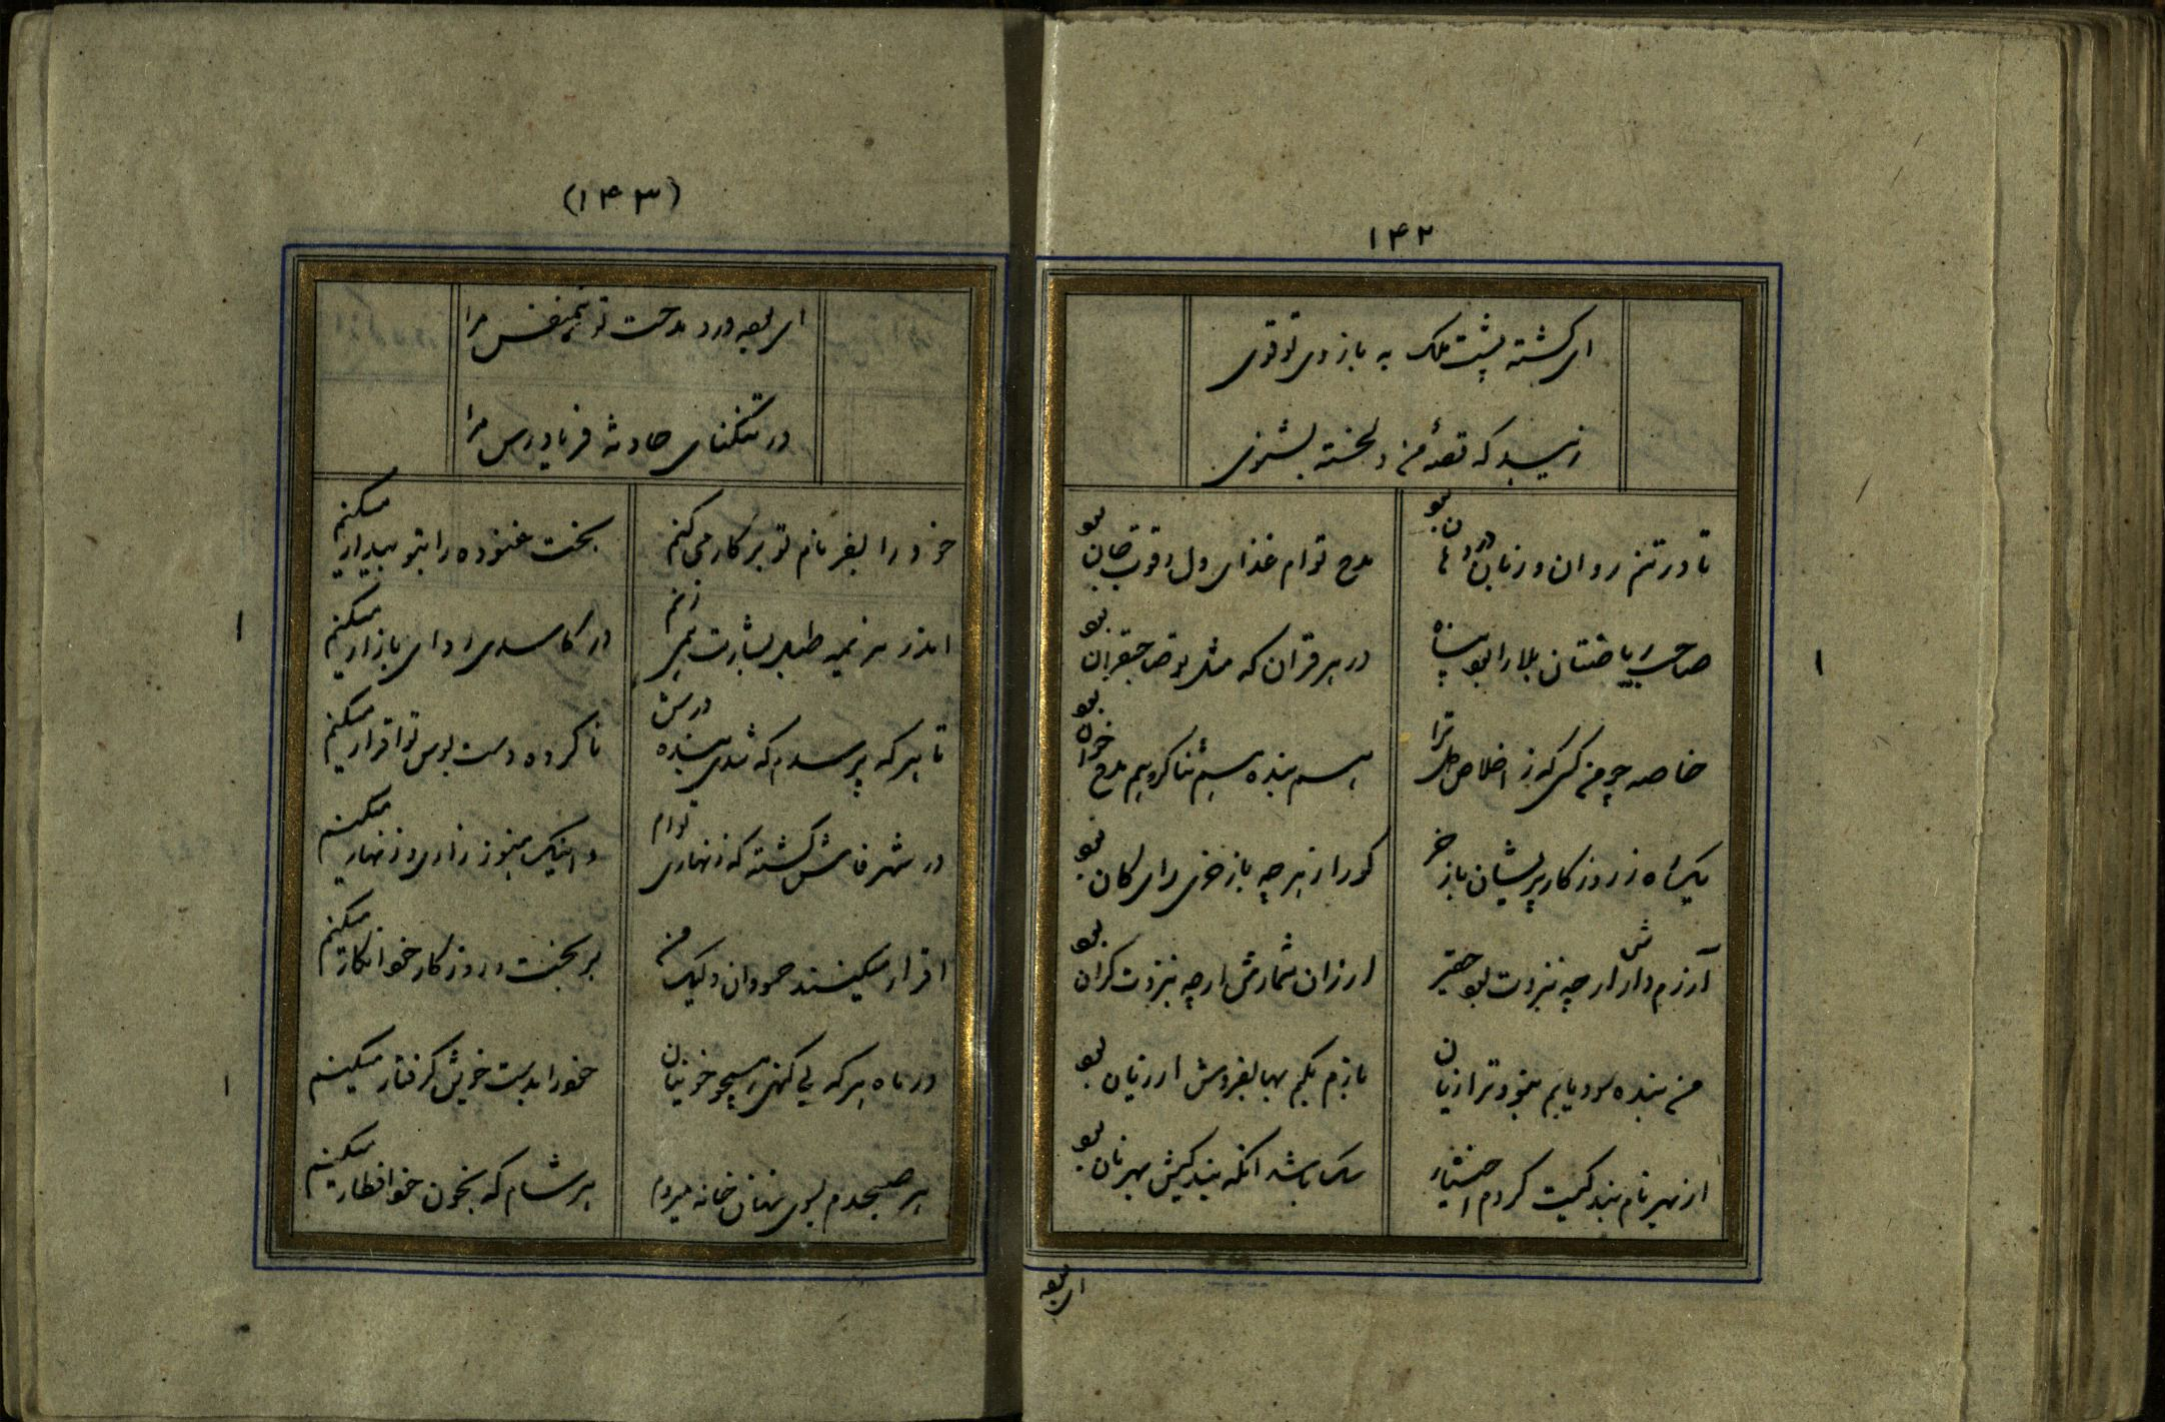 ۱۴۲
ای گشته پشت ملک به بازوی تو قوی
زیبد که قصهٔ من دلخسته بشنوی
تا در تنم روان و زبان در دهان بو
مدح توام غذای دل و قوت جان بو
در هر قران که مثل تو صاحبقران بو
خاصه چو من کسی که ز اخلاص مر ترا
هم بنده هم ثنا گر و هم مدح خوان بو
یک ره ز روزگار پریشان باز خر
کو را ز هر چه باز خری رای کان بو
آزرم دارش ار چه بنزدت بو حقیر
ارزان شمارش ار چه بنزدت گران بو
من بنده سود یابم نبود ترا زیان
بازم بکم بها بفروش ار زیان بو
از بهر نام بندگیت کردم اختیار
سک باشد آنکه بندگیش بهر نان بو
ای بعهد
(۱۴۳)
ای بعهد درد مدحت تو همنفس مرا
در تنگنای حادثه فریادرس مرا
خود را بفر نام تو بر کار می کنم
بخت غنوده را بتو بیدار میکنم
در کاسدی روای بازار میکنم
تا هر که پرسدم که شدی بنده درش
ناکرده دست بوس تو اقرار میکنم
در شهر فاش گشته که زنهاری توام
و اینک هنوز زاری و زنهار میکنم
اقرار میکنند حسودان ولیک من
بر بخت و روزگار خو انکار میکنم
در ماه هر که بی گنهی همچو خونیان
خو را بدست خویش گرفتار میکنم
هر صبحدم بسوی نهان خانه میروم
هر شام که بخون خو افطار میکنم